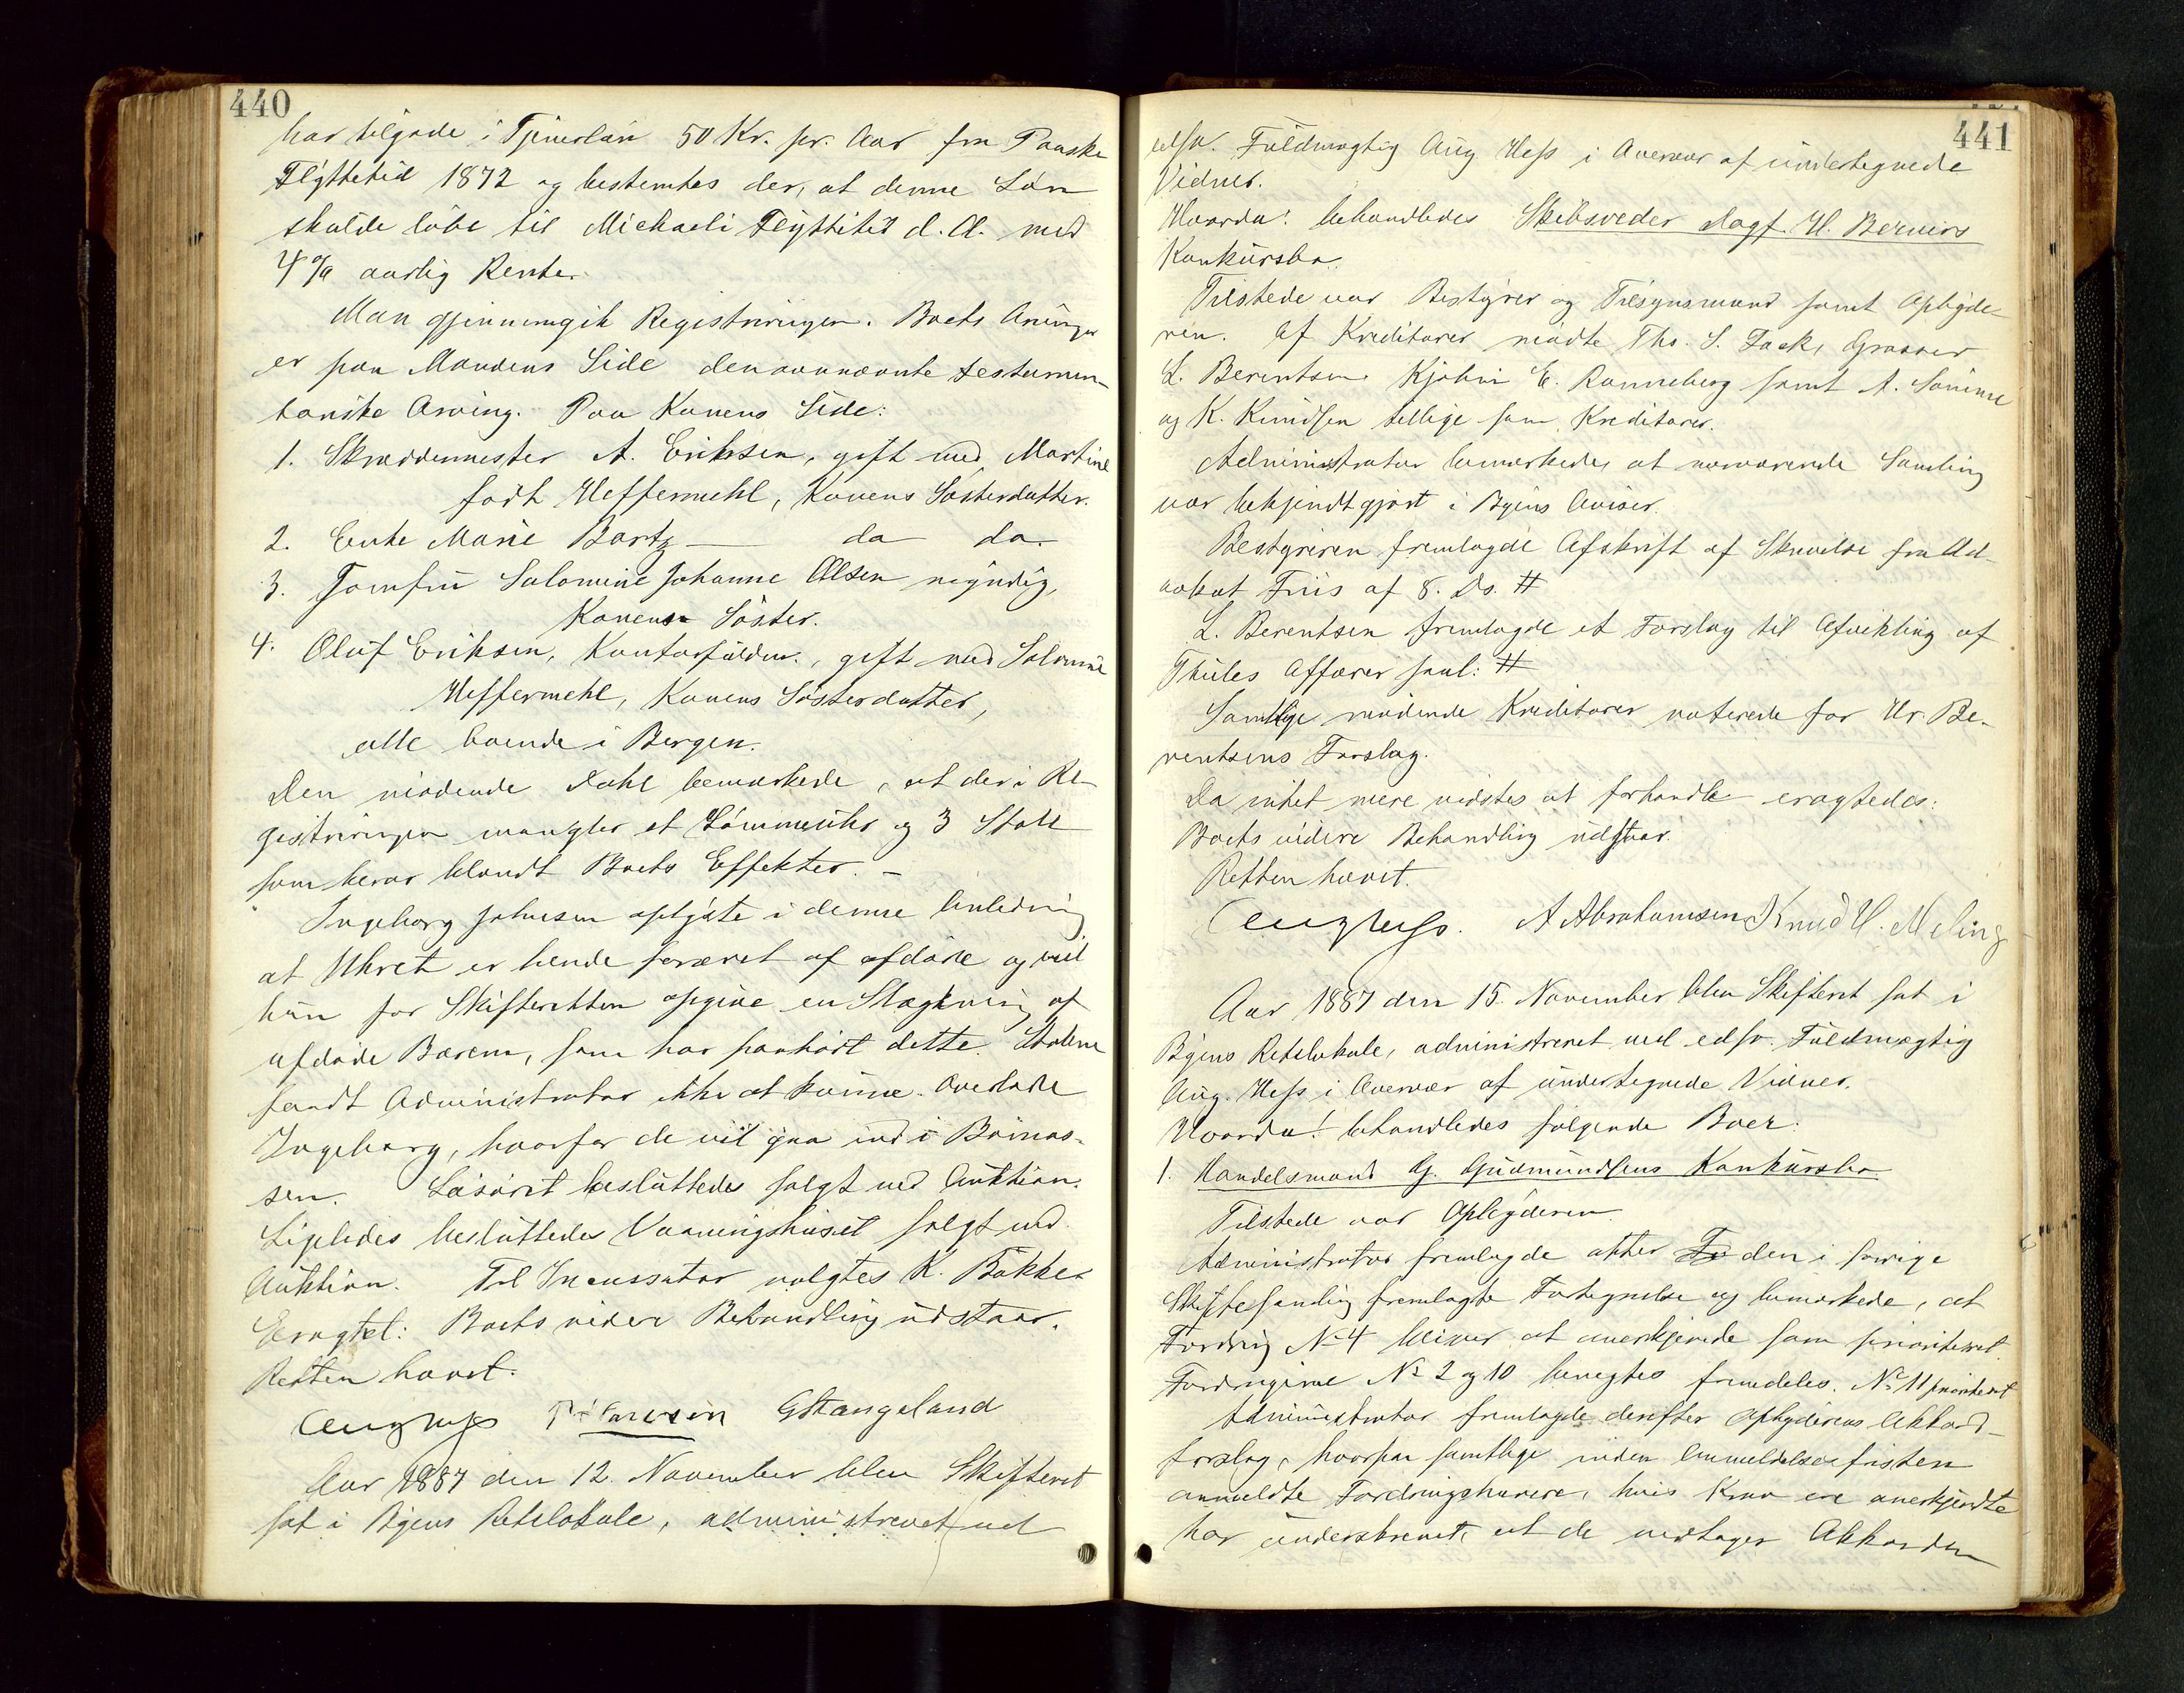 440
har tilgode i Tjenerløn 50 Kr. pr. Aar fra Paaske
Flyttetid 1872 og bestemtes der, at denne Løn
skulde løbe til Michaeli Flyttetid d. A. med
4% aarlig Rente.
Man gjennemgik Registreringen. Boets Arvinger
er paa Mandens Side den ovennævnte testamen-
tariske Arving. Paa Konens Side:
1. Skræddermester A. Eriksen, gift med Martine
født Heffermehl, Konens Søsterdatter.
2. Enke Marie Bartz — do do.
3. Jomfru Salomine Johanne Olsen myndig,
Konens Søster.
4. Oluf Eriksen, Kontorfuldm., gift med Salomine
Heffermehl, Konens Søsterdatter,
alle boende i Bergen.
Den mødende Dahl bemærkede, at der i Re-
gistreringen mangler et Lommeuhr og 3 Stole
som beror blandt Boets Effekter. –
Ingeborg Johnsen oplyste i denne Anledning
at Uhret er hende foræret af afdøde og vil
hun for Skifteretten opgive en Slægtning af
afdøde Barem, som har paahørt dette. Stolene
fandt Administrator ikke at kunne overlade
Ingeborg, hvorfor de vil gaa ind i Bomas-
sen. Løsøret besluttedes solgt ved Auktion.
Ligeledes besluttedes Vaaningshuset solgt ved
Auktion. Til Incassator valgtes K. Bakke.
Eragtet: Boets videre Behandling udstaar.
Retten hævet.
Aug Hess GStangeland
Aar 1887 den 12. November blev Skifteret
sat i Byens Retslokale, administreret ved
441
edsv. Fuldmægtig Aug Hess i Overvær af undertegnede
Vidner.
Hvorda! behandledes Skibsreder Dagf. H.
Konkursbo.
Tilstede var Bestyrer og Tilsynsmand samt Opbyde-
ren. Af Kreditorer mødte Ths. S. Falck,
L. Berentsen Kjøbm E. Ranneberg samt A. Sømme
og K. Knudsen tillige som Kreditorer.
Administrator bemærkede, at nærværende Samling
var bekjendtgjort i Byens Aviser.
Bestyreren fremlagde Afskrift af Skrivelse fra Ad-
vokat Friis af 8. Ds. #
L. Berentsen fremlagde et Forslag til Afvikling af
Thules Affærer saal: #
Samtlige mødende Kreditorer voterede for Hr. Be-
rentsens Forslag.
Da intet mere vidstes at forhandle eragtedes:
Boets videre Behandling udstaar.
Retten hævet.
Aug Hess. A Abrahamsen Knud H. Meling
Aar 1887 den 15. November blev Skifteret sat i
Byens Retslokale, administreret ved edsv. Fuldmægtig
Aug. Hess i Overvær af undertegnede Vidner.
Hvorda! behandledes følgende Boer:
1. Handelsmand G. Gudmundsens Konkursbo
Tilstede var Opbyderen.
Administrator fremlagde atter den i forrige
Skiftesamling fremlagte Fortegnelse og bemærkede, at
Fordring No 4 bliver at anerkjende som prioriteret.
Fordringerne No 2 og 10 benegtes fremdeles. No 11 prioriteret
Administrator fremlagde derefter Opbyderens Akkord-
forslag, hvorpaa samtlige inden Anmeldelsesfristen
anmeldte Fordringshavere, hvis Krav ere anerkjendte
har underskrevet, at de vedtager Akkorden